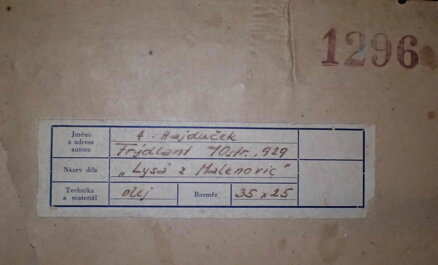 1296
Jméno
a adresa
autora
A. Hajduček
Frýdlant n/Ostr., 929
Název díla
„Lysá z Malenovic"
Technika
a materiál
olej
Rozměr
35 x 25